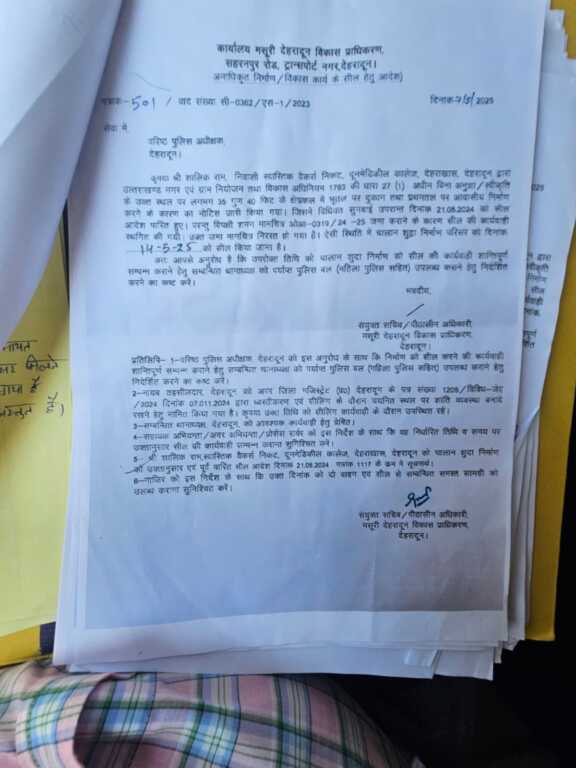 कार्यालय मसूरी देहरादून विकास प्राधिकरण,
सहारनपुर रोड, ट्रान्सपोर्ट नगर, देहरादून।
अनाधिकृत निर्माण/विकास कार्य के सील हेतु आदेश)
पत्रांक-501 / वाद संख्या सी-0362/एस-1/2023 दिनांक-7/5/2025
सेवा में,
वरिष्ठ पुलिस अधीक्षक,
देहरादून।
कृपया श्री शालिक राम, निवासी स्वास्तिक वैकर्स निकट, दूनमेडिकील कालेज, देहराखास, देहरादून द्वारा
उत्तराखण्ड नगर एवं ग्राम नियोजन तथा विकास अधिनियम 1783 की धारा 27 (1) अधीन बिना अनुज्ञा/स्वीकृति
के उक्त स्थल पर लगभग 35 गुणा 40 फिट के क्षेत्रफल में भूतल पर दुकान तथा प्रथमतल पर आवासीय निर्माण
करने के कारण का नोटिस जारी किया गया। जिसमें विधिवत सुनवाई उपरान्त दिनांक 21.08.2024 को सील
आदेश पारित हुए। परन्तु विपक्षी शमन मानचित्र ओआर-0319/24-25 जमा कराने के कारण सील की कार्यवाही
स्थगित की गयी। उक्त जमा मानचित्र निरस्त हो गया है। ऐसी स्थिति में चालान शुदा निर्माण परिसर को दिनांक
14-5-25 को सील किया जाना है।
अतः आपसे अनुरोध है कि उपरोक्त तिथि को चालान शुदा निर्माण को सील की कार्यवाही शान्तिपूर्ण
सम्पन्न कराने हेतु सम्बन्धित थानाध्यक्ष को पर्याप्त पुलिस बल (महिला पुलिस सहित) उपलब्ध कराने हेतु निर्देशित
करने का कष्ट करें।
भवदीय,
संयुक्त सचिव/पीठासीन अधिकारी,
मसूरी देहरादून विकास प्राधिकरण,
देहरादून।
प्रतिलिपि- 1-वरिष्ठ पुलिस अधीक्षक देहरादून को इस अनुरोध के साथ कि निर्माण को सील करने की कार्यवाही
शान्तिपूर्ण सम्पन्न कराने हेतु सम्बन्धित थानाध्यक्ष को पर्याप्त पुलिस बल (महिला पुलिस सहित) उपलब्ध कराने हेतु
निर्देशित करने का कष्ट करें।
2-नायब तहसीलदार, देहरादून को अपर जिला मजिस्ट्रेट (प्र0) देहरादून के पत्र संख्या 1208/विविध-जे0
/2024 दिनांक 07.011.2024 द्वारा ध्वस्तीकरण एवं सीलिंग के दौरान चयनित स्थल पर शांति व्यवस्था बनाये
रखने हेतु नामित किया गया है। कृपया उक्त तिथि को सीलिंग कार्यवाही के दौरान उपस्थित रहें।
3-सम्बन्धित थानाध्यक्ष, देहरादून को आवश्यक कार्यवाही हेतु प्रेषित।
4-सहायक अभियन्ता/अवर अभियन्ता/प्रोसेस सर्वर को इस निर्देश के साथ कि वह निर्धारित तिथि व समय पर
उक्तानुसार सील की कार्यवाही सम्पन्न कराना सुनिश्चित करें।
5- श्री शालिक राम, स्वास्तिक वैकर्स निकट, दूनमेडिकील कालेज, देहराखास, देहरादून को चालान शुदा निर्माण
को उक्तानुसार एवं पूर्व पारित सील आदेश दिनांक 21.08.2024 पत्रांक 1117 के क्रम में सूचनार्थ।
6-नाजिर को इस निर्देश के साथ कि उक्त दिनांक को दो वाहन एवं सील से सम्बन्धित समस्त सामग्री को
उपलब्ध कराना सुनिश्चित करें।
संयुक्त सचिव/पीठासीन अधिकारी,
मसूरी देहरादून विकास प्राधिकरण,
देहरादून।